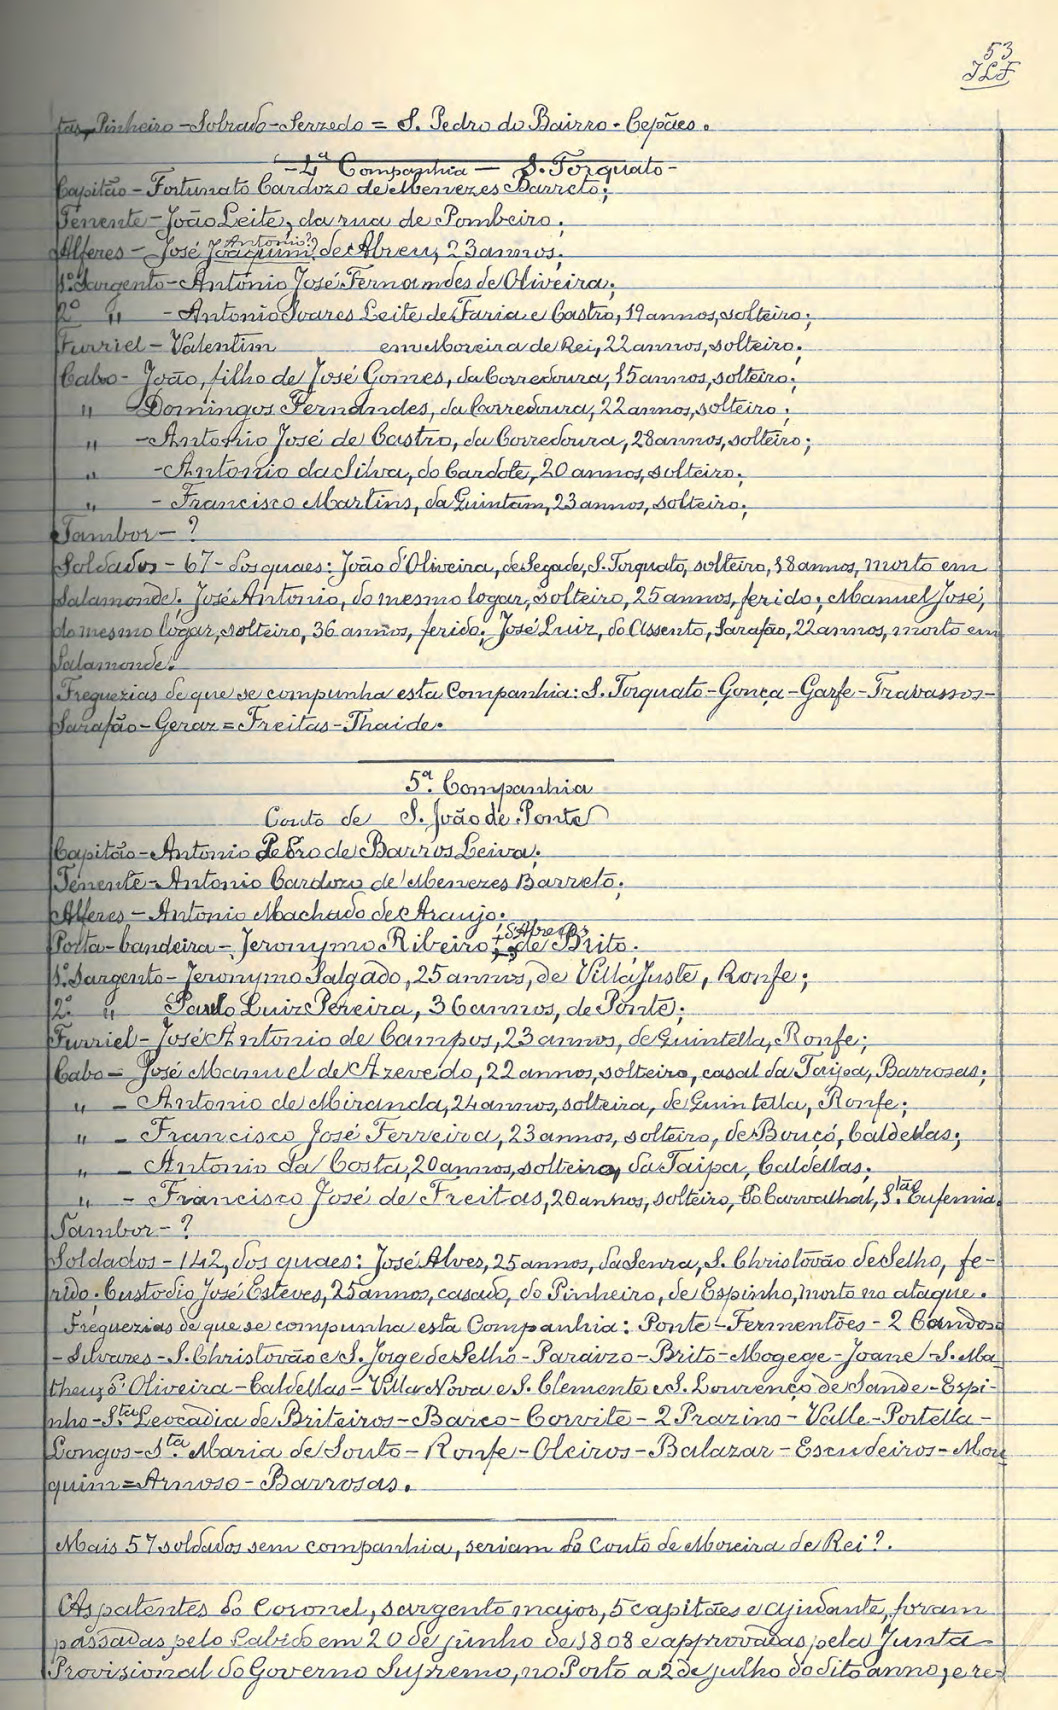 53
JLF
tas, Pinheiro - Sobrado - Serzedo = S. Pedro do Bairro - Cepães.
- 4ª Companhia — S. Torquato -
Capitão - Fortunato Cardozo de Menezes Barreto;
Tenente - João Leite, da rua de Pombeiro;
Antonio?
Alferes - José Joaquim de Abreu, 23 annos;
1º Sargento - Antonio José Fernandes de Oliveira;
2º " - Antonio Soares Leite de Faria e Castro, 19 annos, solteiro;
Furriel - Valentim em Moreira de Rei, 22 annos, solteiro;
Cabo - João, filho de José Gomes, da Corredoura, 15 annos, solteiro;
" - Domingos Fernandes, da Corredoura, 22 annos, solteiro;
" - Antonio José de Castro, da Corredoura, 28 annos, solteiro;
" - Antonio da Silva, do Cardote, 20 annos, solteiro;
" - Francisco Martins, da Quintam, 23 annos, solteiro;
Tambor - ?
Soldados - 67 - dos quaes: João d'Oliveira, de Segade, S. Torquato, solteiro, 18 annos, morto em
Salamonde; José Antonio, do mesmo logar, solteiro, 25 annos, ferido; Manuel José,
do mesmo logar, solteiro, 36 annos, ferido; José Luiz, do Assento, Sarafão, 22 annos, morto em
Salamonde.
Freguezias de que se compunha esta Companhia: S. Torquato - Gonça - Garfe - Travassos -
Sarafão - Geraz = Freitas - Thaide.
5ª Companhia
Couto de S. João de Ponte
Capitão - Antonio Pedro de Barros Leiva;
Tenente - Antonio Cardozo de Menezes Barreto;
Alferes - Antonio Machado de Araujo;
d'Abreu?
Porta-bandeira - Jeronymo Ribeiro de Brito;
1º Sargento - Jeronymo Salgado, 25 annos, de Villa Juste, Ronfe;
2º " Paulo Luiz Pereira, 36 annos, de Ponte;
Furriel - José Antonio de Campos, 23 annos, de Quintella, Ronfe;
Cabo - José Manuel de Azevedo, 22 annos, solteiro, casal da Taipa, Barrosas;
" - Antonio de Miranda, 24 annos, solteira, de Quintella, Ronfe;
" - Francisco José Ferreira, 23 annos, solteiro, de Bouçó, Caldellas;
" - Antonio da Costa, 20 annos, solteiro, da Taipa, Caldellas;
" - Francisco José de Freitas, 20 annos, solteiro, do Carvalhal, S.ta Eufemia.
Tambor - ?
Soldados - 142, dos quaes: José Alves, 25 annos, da Senra, S. Christovão de Selho, fe-
rido; Custodio José Esteves, 25 annos, casado, do Pinheiro, de Espinho, morto no ataque.
Freguezias de que se compunha esta Companhia: Ponte - Fermentões - 2 Candoso
- Silvares - S. Christovão e S. Jorge de Selho - Paraizo - Brito - Mogege - Joane - S. Ma-
theus d'Oliveira - Caldellas - Villa Nova e S. Clemente e S. Lourenço de Sande - Espi-
nho - S.ta Leocadia de Briteiros - Barco - Corvite - 2 Prazins - Valle - Portella -
Longos - S.ta Maria de Souto - Ronfe - Oleiros - Balazar - Escudeiros - Mou
quim = Arnoso - Barrosas.
Mais 57 soldados sem companhia, seriam do Couto de Moreira de Rei?.
As patentes do Coronel, sargento major, 5 capitães e ajudante, foram
passadas pelo Cabido em 20 de junho de 1808 e approvadas pela Junta
Provisional do Governo Supremo, no Porto a 2 de julho do dito anno, e re-